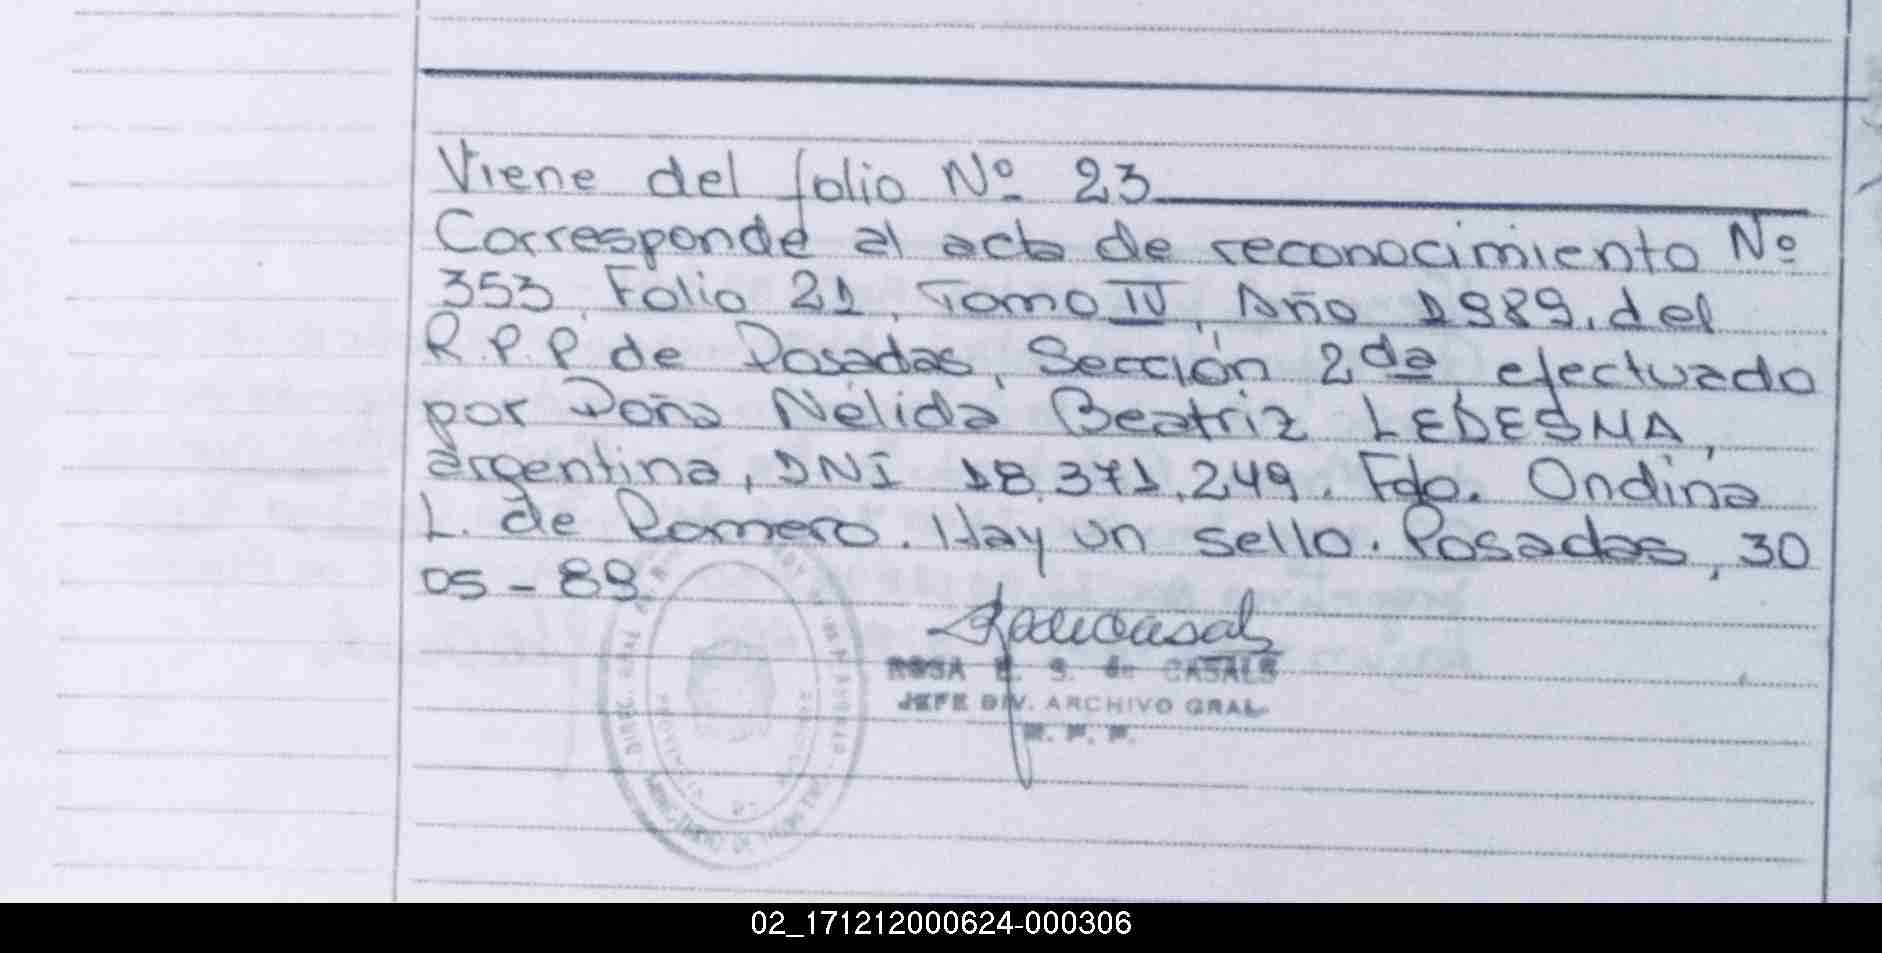 Viene del folio Nº 23
Corresponde al acta de reconocimiento Nº
353, Folio 21, Tomo IV, Año 1989, del
R.P.P de Posadas, Sección 2da efectuado
por Doña Nélida Beatriz LEDESMA,
argentina, DNI 18.371.249. Fdo. Ondina
L. de Romero. Hay un sello. Posadas, 30
05 - 89
ROSA E. S. de CASALS
JEFE DIV. ARCHIVO GRAL.
R. P. P.
02_171212000624-000306